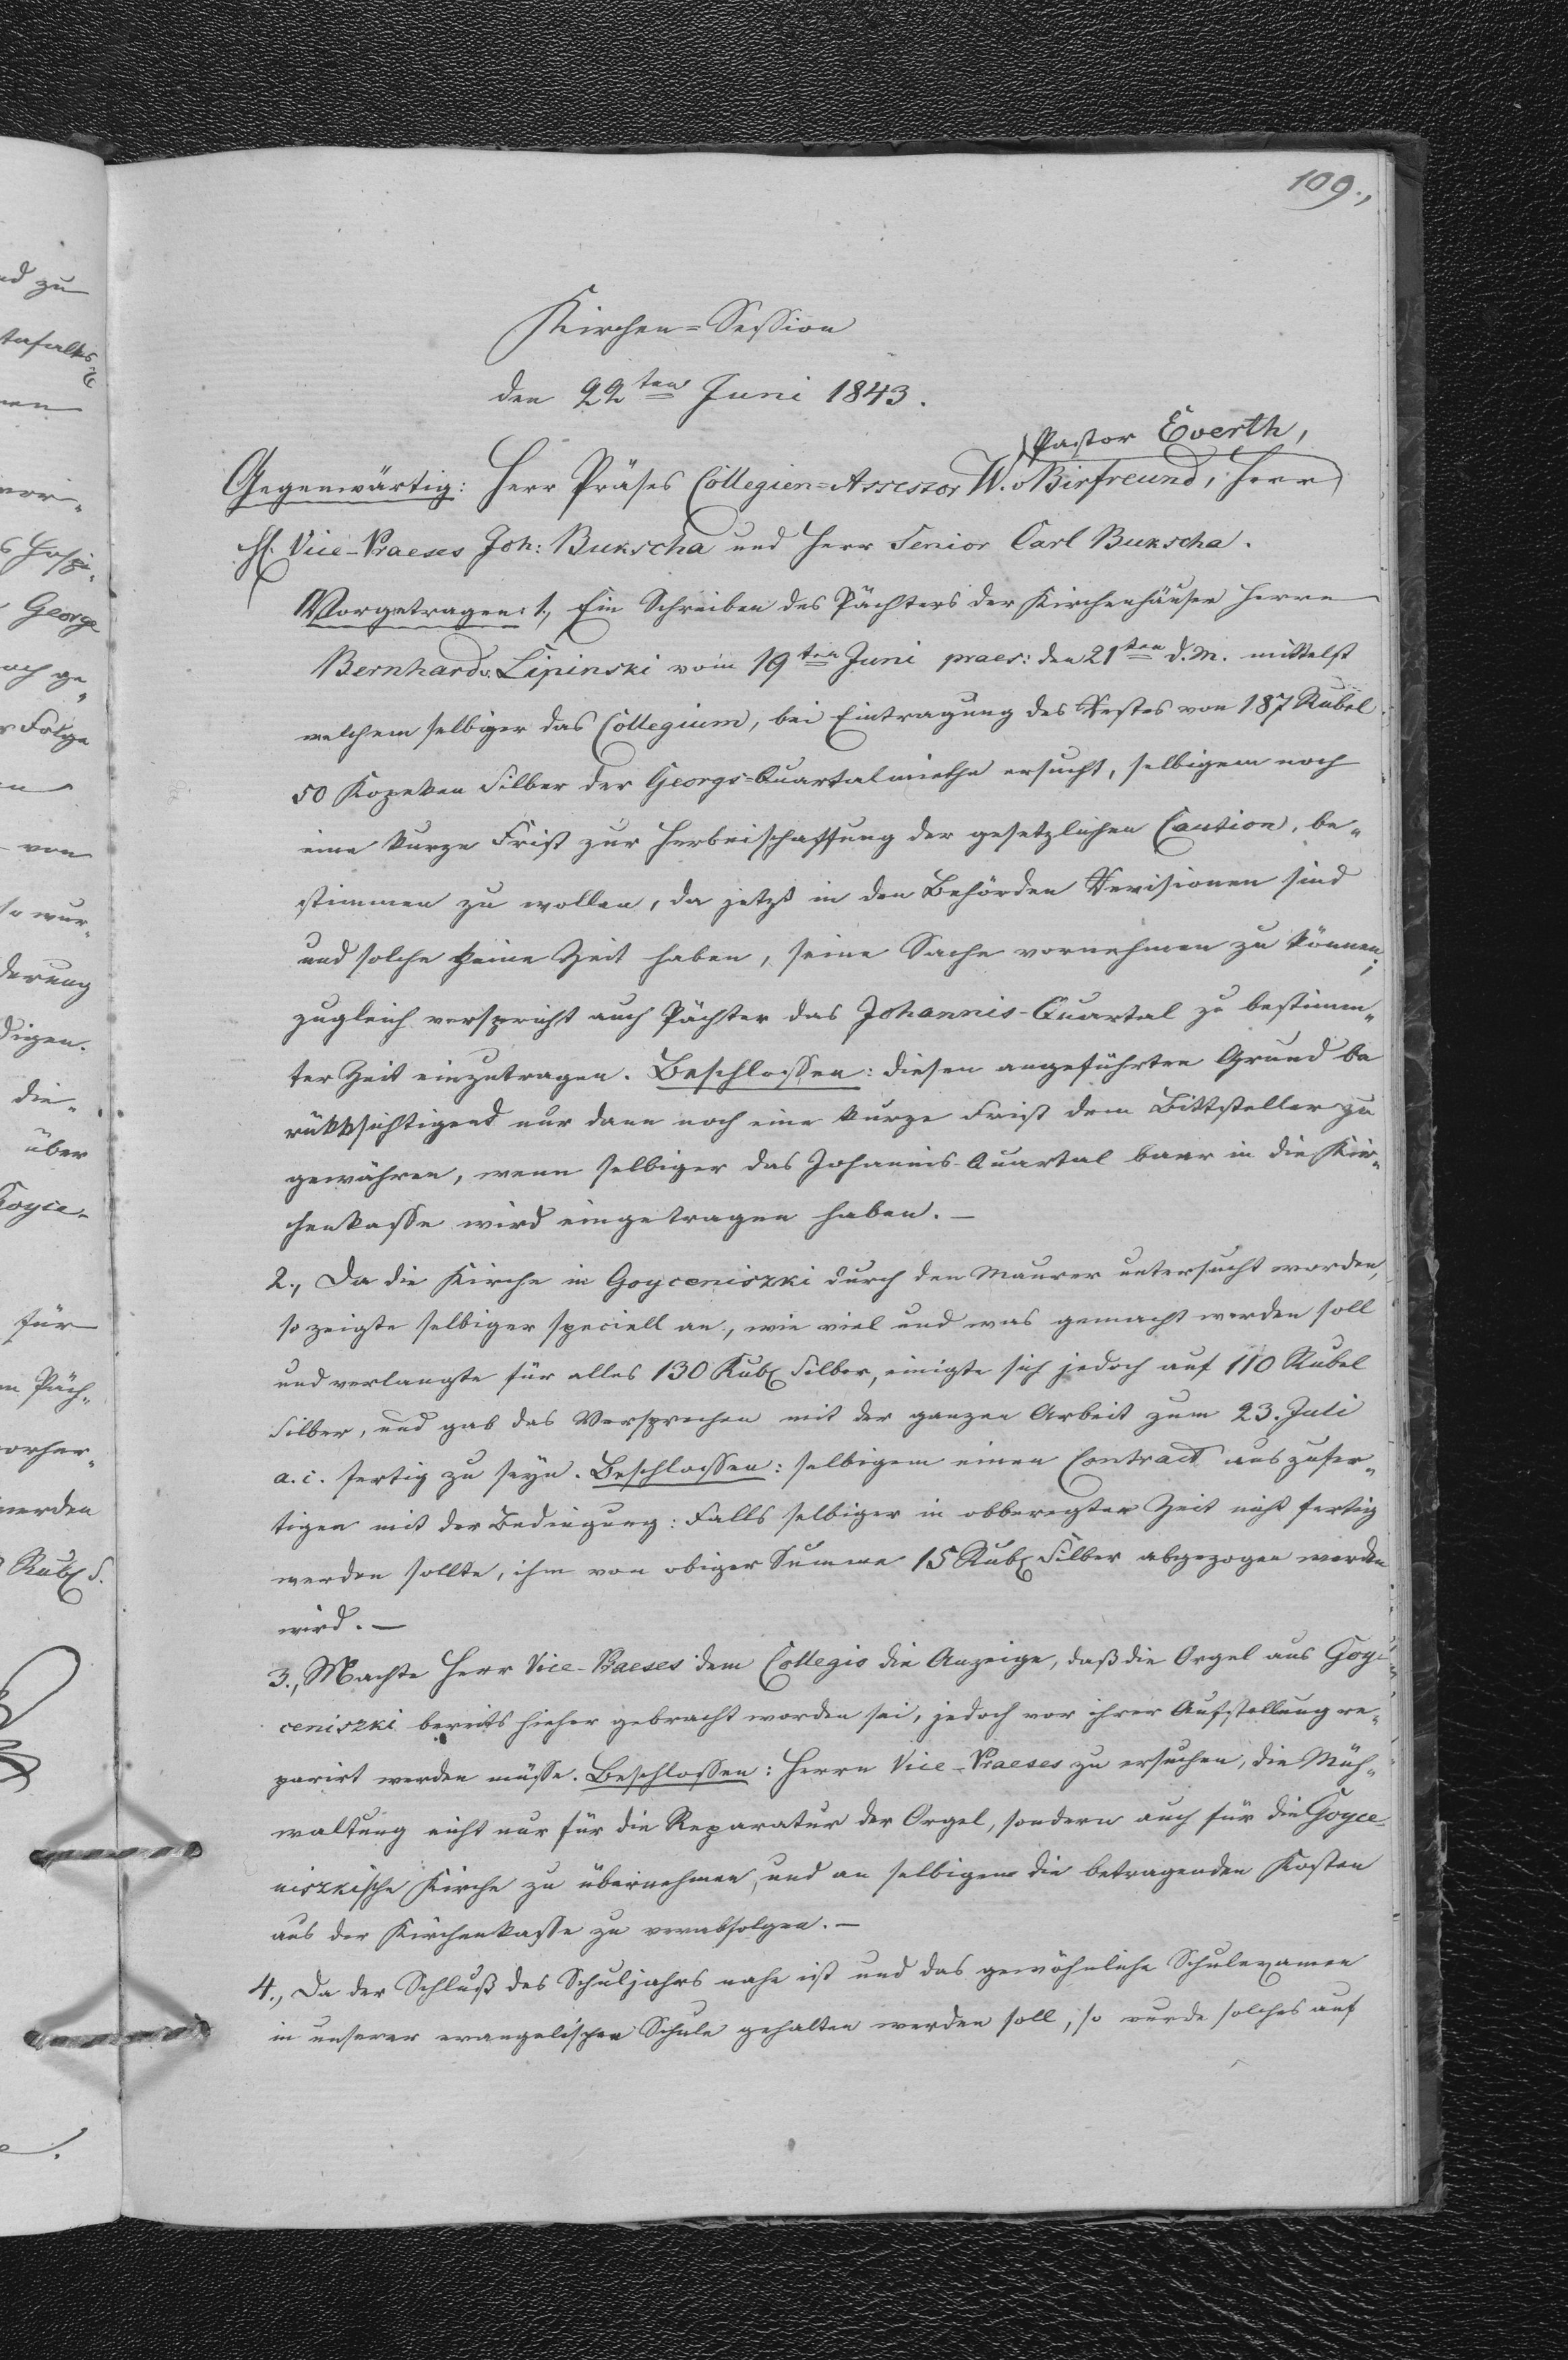 109.,
Kirchen=Session
den 22ten Juni 1843.
Pastor Everth,
Gegenwärtig: Herr Präses Collegien=Assessor W. v Birfreund, Herr
H. Vice-Praeses Joh: Bukscha und Herr Senior Carl Bukscha.
Vorgetragen: 1., Ein Schreiben des Pächters der Kirchenhäuser Herrn
Bernhard v. Lipinski vom 19ten Juni praes: den 21ten d. M. mittelst
welchem selbiger das Collegium, bei Eintragung des Restes von 187 Rubel
50 Kopeken Silber der Georgs=Quartalmiethe ersucht, selbigem noch
eine kurze Frist zur Herbeischaffung der gesetzlichen Caution, be„
stimmen zu wollen, da jetzt in den Behörden Revisionen sind
und solche keine Zeit haben, seine Sache vornehmen zu können;
zugleich verspricht auch Pächter das Johannis-Quartal zu bestimm„
ter Zeit einzutragen. Beschlossen: diesen angeführten Grund be
rükksichtigend nur dann noch eine kurze Frist dem Bittsteller zu
gewähren, wenn selbiger das Johannis-Quartal baar in die Kir„
chenkasse wird eingetragen haben. —
2., Da die Kirche in Goyceniszki durch den Maurer untersucht worden,
so zeigte selbiger speciell an, wie viel und was gemacht werden soll
und verlangte für alles 130 Rub Silber, einigte sich jedoch auf 110 Rubel
Silber, und gab das Versprechen mit der ganzen Arbeit zum 23. Juli
a. c. fertig zu seyn. Beschlossen: selbigem einen Contract auszufer„
tigen mit der Bedingung: Falls selbiger in obberegter Zeit nicht fertig
werden sollte, ihm von obiger Summe 15 Rub Silber abgezogen werden
wird. —
3., Machte Herr Vice-Praeses dem Collegio die Anzeige, daß die Orgel aus Goy=
ceniszki bereits hieher gebracht worden sei, jedoch vor ihrer Aufstellung re„
parirt werden müsse. Beschlossen: Herrn Vice-Praeses zu ersuchen, die Müh„
waltung nicht nur für die Reparatur der Orgel, sondern auch für die Goyce-
niszkische Kirche zu übernehmen, und an selbigem die betragenden Kosten
aus der Kirchenkasse zu verabfolgen. —
4., Da der Schluß des Schuljahrs nahe ist und das gewöhnliche Schulexamen
in unserer evangelischen Schule gehalten werden soll, so wurde solches auf